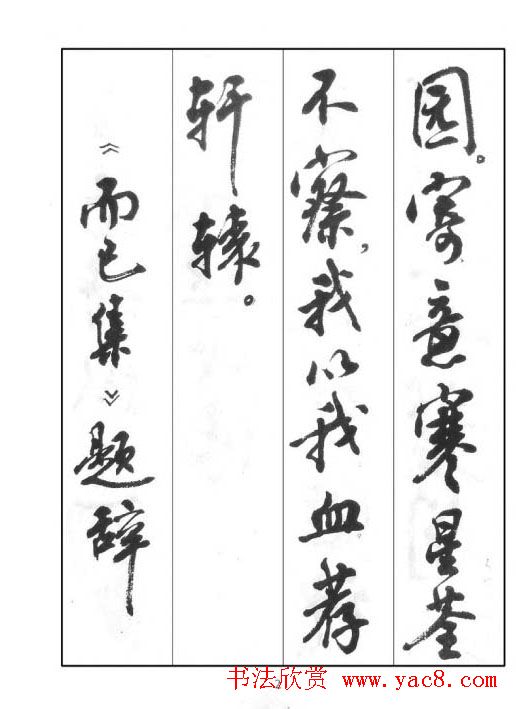 园。寄意寒星荃
不察，我以我血荐
轩辕。
《而已集》题辞
书法欣赏 www.yac8.com